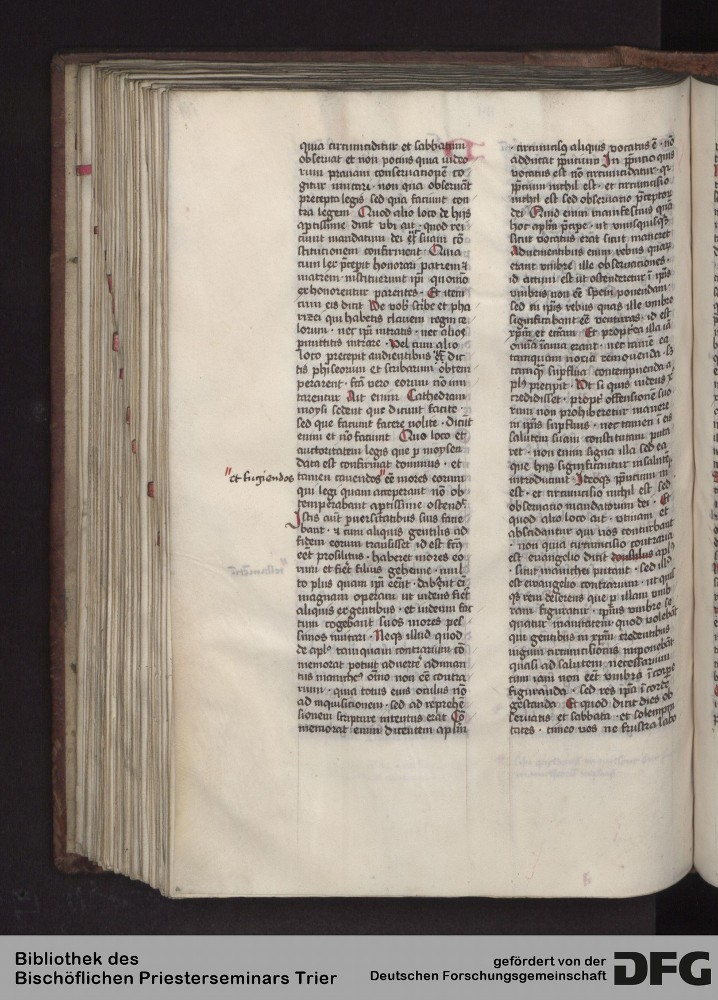 quia circumciditur et sabbatum
obseruat et non pocius quia
gitur imitari · non quia obseruat
precepta legis sed quia faciunt con
tra legem Quod alio loco de hijs
aptissime dixit vbi ait · quod rei
mandatum dei suam
stitucionem confirment
tum lex precepit honorari patrem
matrem instituerunt ipi quomodo
exhonorentur parentes · Et item
cum eis dicit We vob scribe et pha
rizei qui habetis clauem regni ce
lorum · nec ipi intratis · nec alios
intrare · Vel cum alio
loco precepit audientibus
tis phiseorum et scribarum obtem
perarent · fcta vero eorum no imi
tarentur Ait enim Cathedram
moysi sedent que dicunt facite ·
sed que faciunt facere nolite · dicut
enim et no faciunt Quo loco et
auctoritatem legis que p moysen
data est confirmat dominus · et
et fugiendos
tamen cauendos ee mores eorum
qui legi quam acceperant no ob
temperabant aptissime ostend
Istis aut puersitatibus suis
bant · cum aliquis gentilis ad
fidem eorum transisset id est
eet prosilitus · haberet mores eo
rum et fiet filius gehenne ·
to plus quam ipi
magnam operam ut iudeus fiet
aliquis ex gentibus · et iudeum fac
tum cogebant suos mores pes
simos imitari · Neqs illud quod
de aplo tamquam contrarium co
memorat potuit aduerte adiman
tus oino non ee contra
rium · quia totus eius oculus no
ad inquisitionem · sed ad reprehe
sionem scripture intentus erat Co
memorat enim dicentem aplm

· circumcisq aliquis vocatus e · no
adducat pputium In pputio quis
vocatus est no circumcidatur ·
pputium nichil est · et circumcisio
nichil est sed obseruatio preceptor
dei Quid enim manifestius qua
hoc aplm · ut vnusquisqs
sicut vocatus erat sicut maneret
Aduenientibus enim rebus quar
erant vmbre ille obseruationes ·
id actum est ut ostenderetur i ipis
vmbris non ee spem ponendam ·
sed in ipis rebus quas ille vmbre
significabant ee venturas · id est
xpm et eccam Et propterea illa ia
erant · nec tamen ea
tamquam noxia remouenda ·
tamqua contempnenda a
plo precipit · Ut si quis iudeus x
credidisset · propt offensione suo
rum non prohiberetur manere
in ipis suptuus · nec tamen i eis
salutem suam constitutam puta
ret · non enim signa illa sed ea
que hijs significantur in salute
introducunt Ideoqs pputium ni
est · et circumcisio nichil est sed
obseruatio mandatorum dei · Et
quod alio loco ait · vtinam et
abscidantur qui vos conturbant
· non quia circumcisio contraria
est euangelio dixit
· sicut manichei putant · sed
est euangelio contrarium · ut quis
qs rem deserens que p illam vmb
ram figuratur · ipius vmbre se
quatur inanitatem · quod volebat
qui gentibus in xpm credentibus
iugum circumcisionis imponebat
quasi ad salutem necessarium
cum iam non eet vmbra i corpe
figuranda · sed res ipa i corde
gestanda Et quod dicit dies ob
seruatis et sabbata · et solempni
tates · timeo vos ne frustra labo

Bibliothek des
Bischöflichen Priesterseminars Trier
gefördert von der
Deutschen Forschungsgemeinschaft
DFG